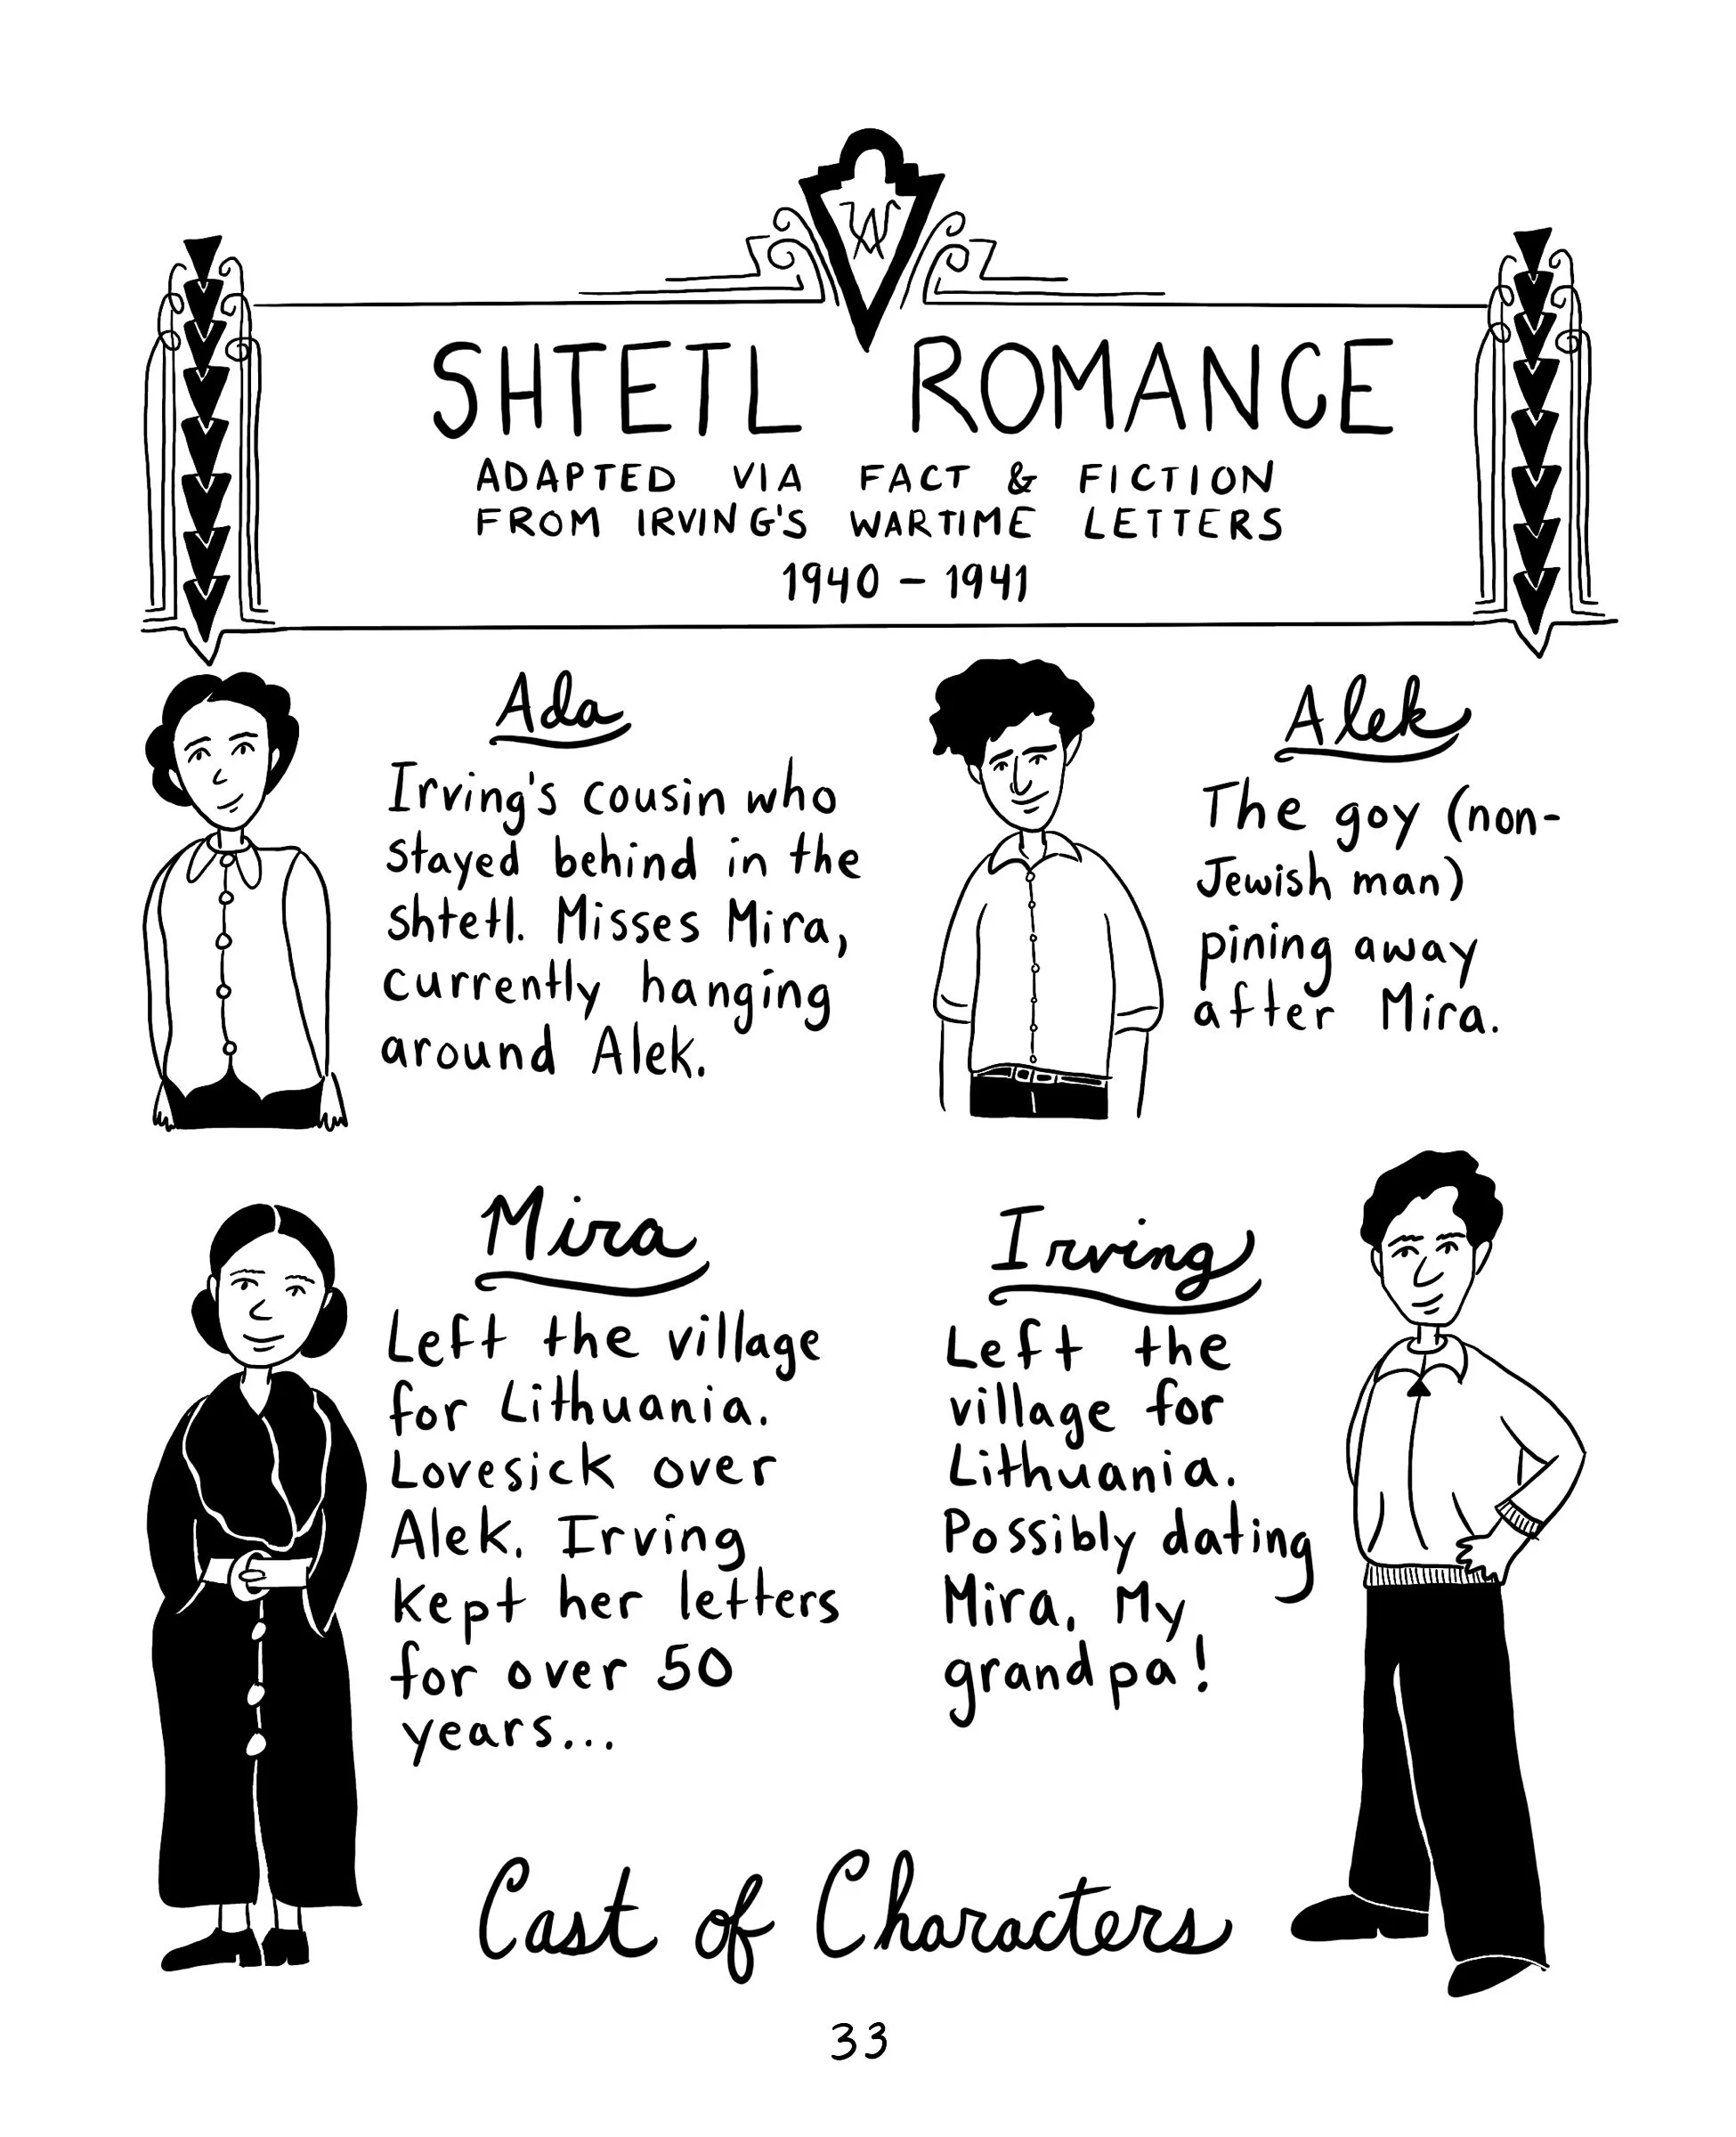 W
SHTETL ROMANCE
ADAPTED VIA FACT & FICTION
FROM IRVING'S WARTIME LETTERS
1940 – 1941
Ada
Irving's cousin who
stayed behind in the
shtetl. Misses Mira,
currently hanging
around Alek.
Alek
The goy (non-
Jewish man)
pining away
after Mira.
Mira
Left the village
for Lithuania.
Lovesick over
Alek. Irving
kept her letters
for over 50
years...
Irving
Left the
village for
Lithuania.
Possibly dating
Mira. My
grandpa!
Cast of Characters
33